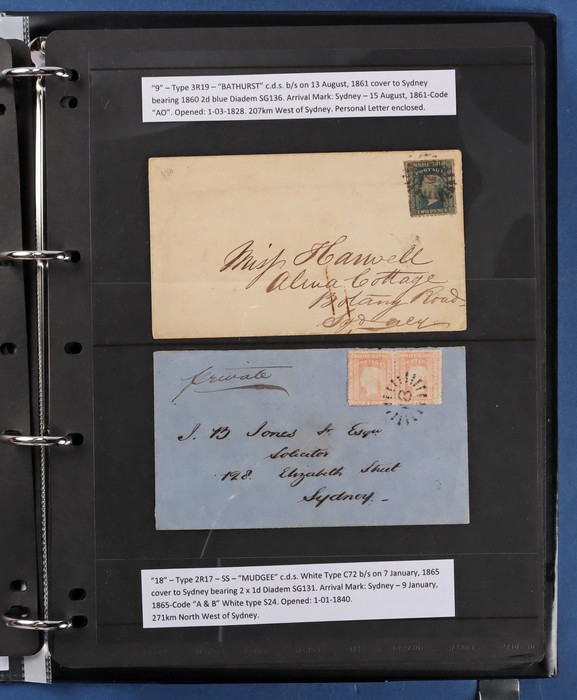 "9" – Type 3R19 – "BATHURST" c.d.s. b/s on 13 August, 1861 cover to Sydney
bearing 1860 2d blue Diadem SG136. Arrival Mark: Sydney – 15 August, 1861-Code
"AO". Opened: 1-03-1828. 207km West of Sydney. Personal Letter enclosed.
POSTAGE
TWO PENCE
Miss Harwell
Alma Cottage
Botany Road
Sydney
Private
J. B Jones Jr Esqr
Solicitor
128 Elizabeth Street
Sydney
"18" – Type 2R17 – SS – "MUDGEE" c.d.s. White Type C72 b/s on 7 January, 1865
cover to Sydney bearing 2 x 1d Diadem SG131. Arrival Mark: Sydney – 9 January,
1865-Code "A & B" White type S24. Opened: 1-01-1840.
271km North West of Sydney.